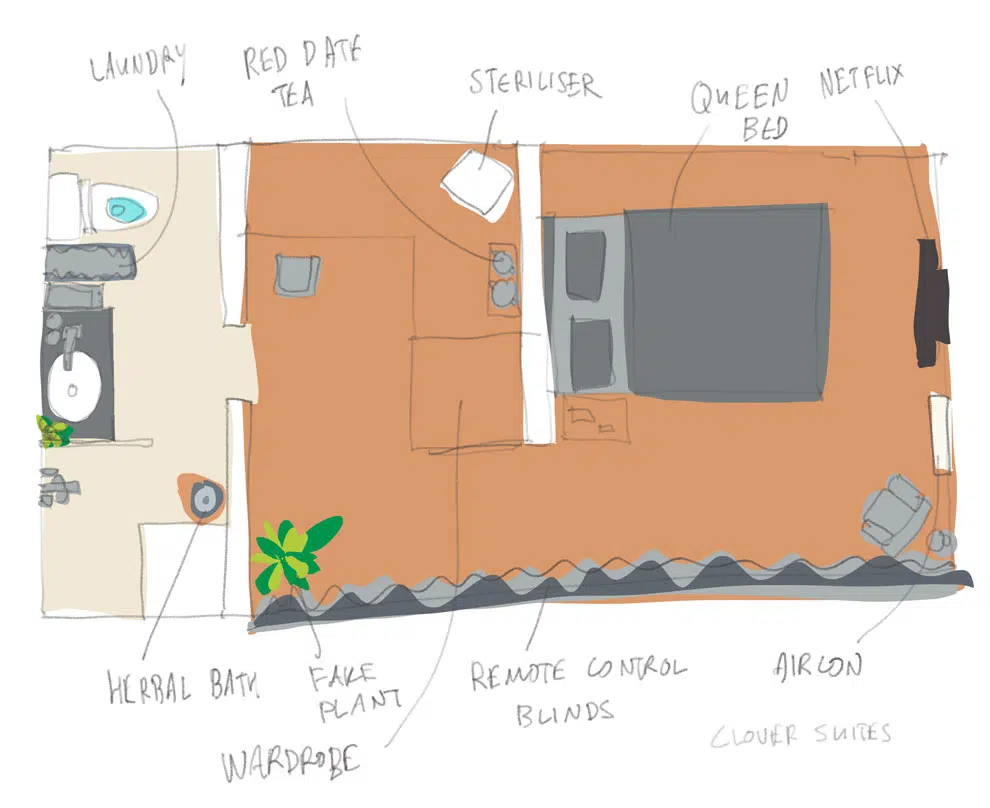 LAUNDRY
RED DATE
TEA
STERILISER
QUEEN
BED
NETFLIX
HERBAL BATH
FAKE
PLANT
WARDROBE
REMOTE CONTROL
BLINDS
AIRCON
CLOVER SUITES